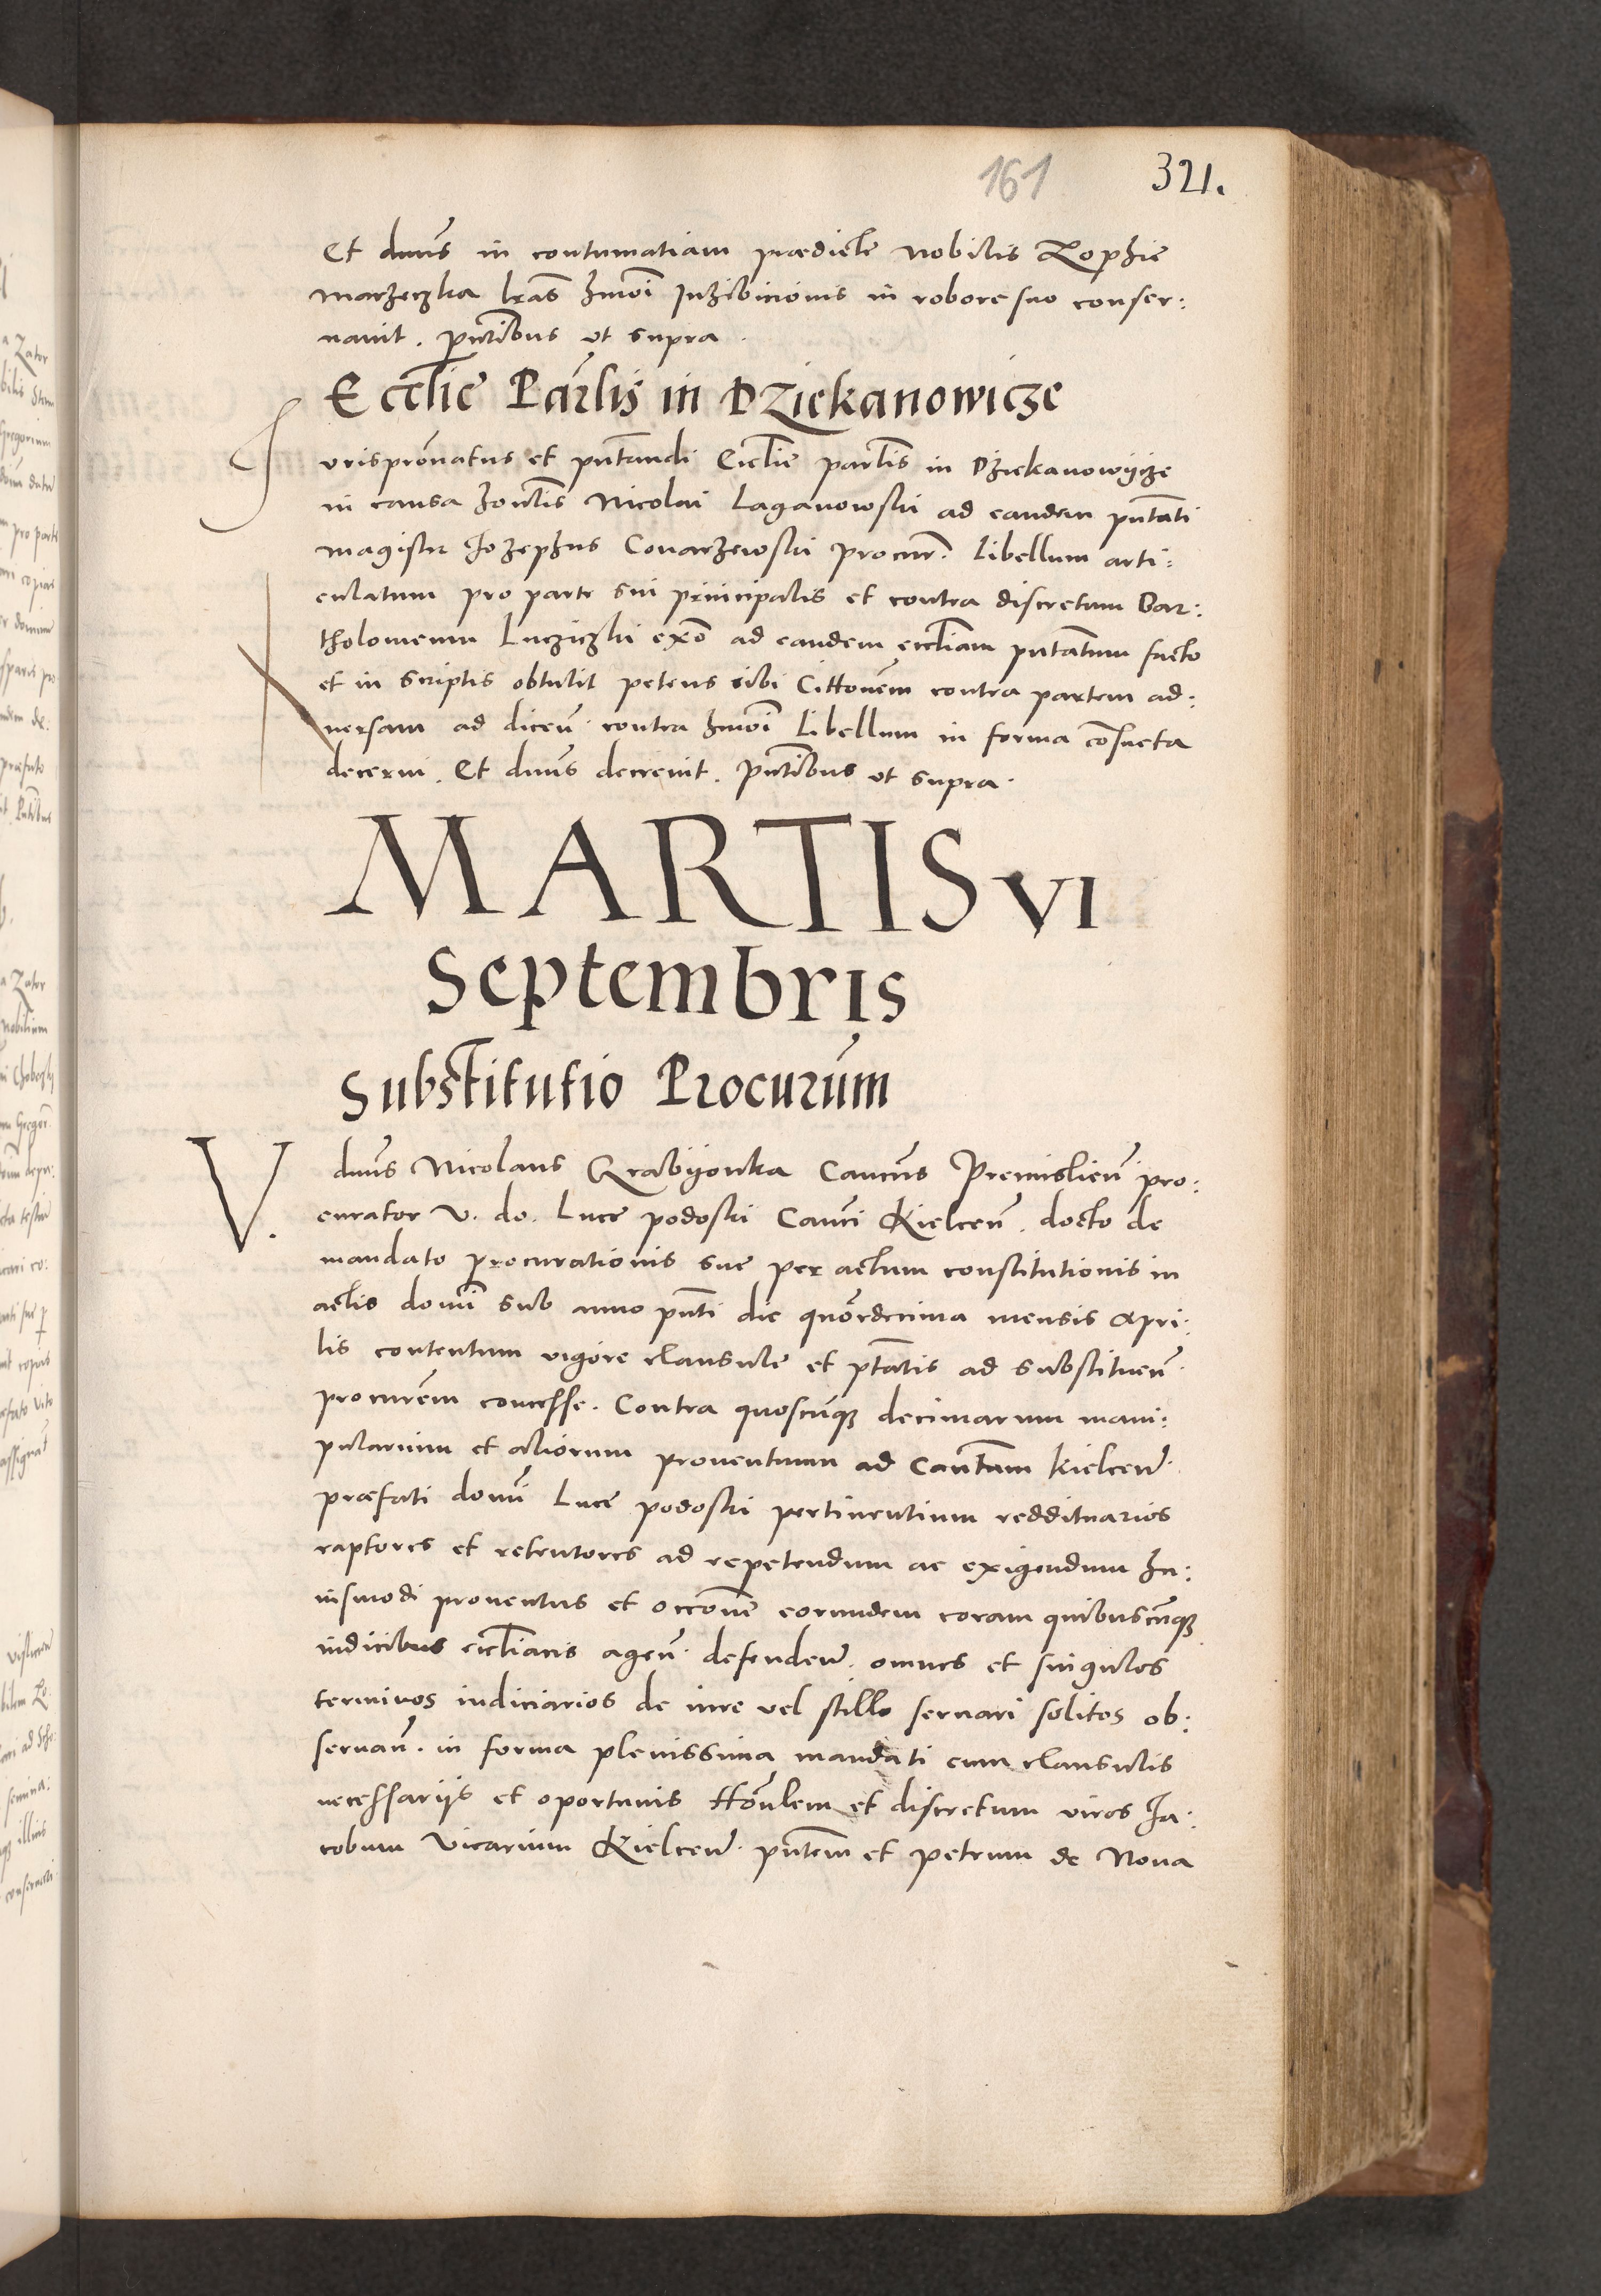 161 321.
Et dnus in contumatiam prædicte Nobilis Zophie
Marzeczka lras hmoi Inhibicionis in robore suo conser:
uauit. pntibus ut supra.
Ecclie Parlis in Dziekanowicze
Jurispronatus et pntandi Ecclie parlis in Dziekanowijcze
in causa honlis Nicolai Laganowski ad eandem pntati
magister Jozephus Conarzewski procur. Libellum arti:
culatum pro parte sui principalis et contra discretum Bar:
tholomeum Lucziczki exo ad eandem eccliam pntatum facto
et in scriptis obtulit petens sibi Cittonem contra partem ad:
uersam ad dicen. contra hmoi Libellum in forma cosueta
decerni. Et dnus decreuit. Pntibus ut supra.
MARTIS VI
Septembris
Substitutio Procurum
V. dnus Nicolaus Grabijonka Cancus Premislien pro:
curator V. do. Luce podoski Canci Kielcen. docto de
mandato procurationis sue per actum constitutionis in
actis domi sub anno pnti die quordecima mensis Apri:
lis contentum vigore clausule et ptatis ad substituen.
procurem concesse. Contra quoscunque decimarum mani:
pularium et aliorum prouentuum ad Cantam kielcen.
præfati domi Luce podoski pertinentium reddituarios
raptores et retentores ad repetendum ac exigendum hu:
iusmodi prouentus et occone eorundem coram quibuscunque
iudicibus ecclіacis agen. defenden. omnes et singulos
terminos iudiciarios de iure vel stillo seruari solitos ob:
seruan. in forma plenissima mandati cum clausulis
necessarijs et oportunis Honlem et discretum viros Ja:
cobum Vicarium Kielcen. pntem et petrum de Noua